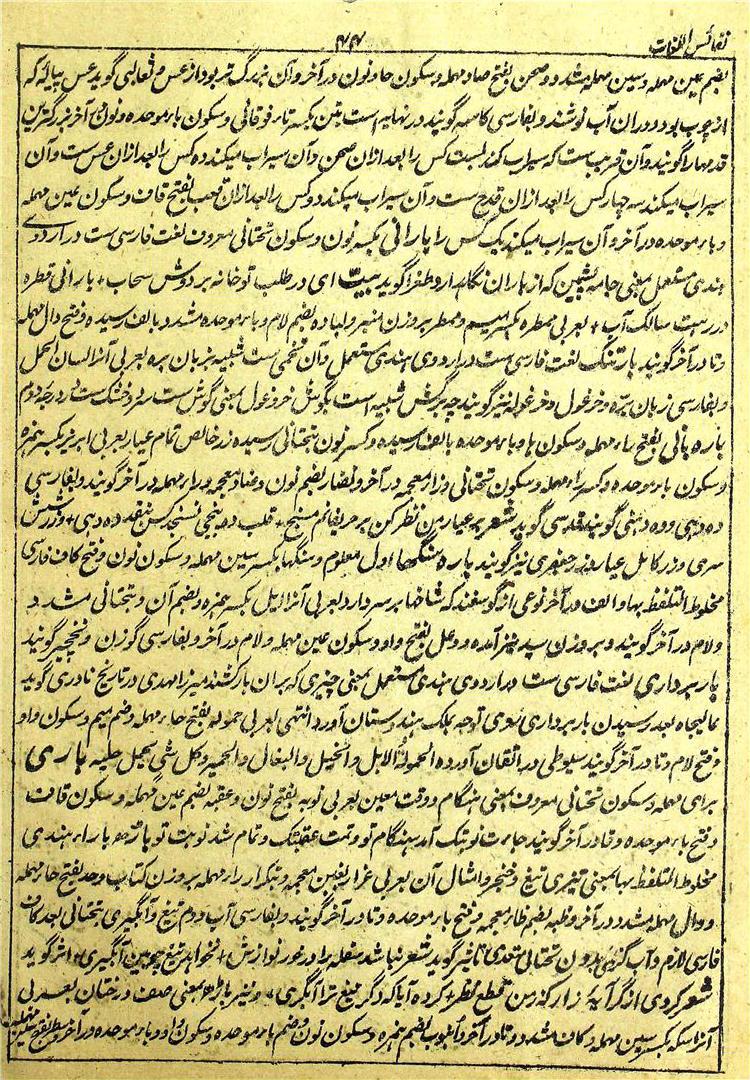 نفائس اللغات
۴۴
بضم عین مهمله وسین مهمله مشدد و صحن بفتح صاد مهمله وسکون حا و نون در آخر و آن بزرگ تر بود از عس و ثعالبی گوید عس پیاله که
از چوب بود و در آن آب نوشند و بفارسی کاسه گویند در نهایه است تبن بکسر تاء فوقانی وسکون باء موحده و نون در آخر بزرگترین
قدحها را گویند و آن قریب است که سیراب کند بست کس را بعد از آن صحن و آن سیراب میکند ده کس را بعد از آن عس ست و آن
سیراب میکند سه چهار کس را بعد از آن قدح ست و آن سیراب میکند دو کس را بعد از آن قعب بفتح قاف وسکون عین مهمله
و باء موحده در آخر و آن سیراب میکند یک کس را بارانی بکسر نون وسکون تحتانی معروف لغت فارسی ست در اردوی
هندی مستعمل بمعنی جامه پشمین که از باران نگاه دارد طغرا گوید بیت ای در طلب تو خانه بر دوش سحاب + بارانی قطره
در رهت سالک آب + بعربی ممطره بکسر میم و ممطر بر وزن منبر و لباده بضم لام و باء موحده مشدد بالف رسیده و فتح دال مهمله
و تا در آخر گویند بارتنگ لغت فارسی ست در اردوی هندی مستعمل و آن تخمی ست شبیه بزبان بره بعربی آنرا لسان الحمل
و بفارسی زبان بره و خرغول و خرغوله نیز گویند چه برگش شبیه است بگوش خر و غول بمعنی گوش ست سرد و خشک ست در درجه دوم
باره بانی بفتح راء مهمله وسکون ها و باء موحده بالف رسیده و کسر نون بتحتانی رسیده زر خالص تمام عیار بعربی ابریز بکسر همزه
وسکون باء موحده و کسر راء مهمله وسکون تحتانی و زاء معجمه در آخر و نضار بضم نون و ضاد معجمه و راء مهمله در آخر گویند و بفارسی
ده دهی و ده دهنی گویند قدسی گوید شعر بر عیار من نظر کن بر حریفانم مسنج + قلب ده پنجی نسنجد کس بنقد ده دهی + و زر شش
سری و زر کامل عیار و زر جعفری نیز گویند باره سنگها اول معلوم و سنگها بکسر سین مهمله وسکون نون و فتح کاف فارسی
مخلوط التلفظ بها و الف در آخر نوعی از گوسفند که شاخها بر سر دارد بعربی آنرا ایل بکسر همزه و بضم آن و تحتانی مشدد
و لام در آخر گویند و بر وزن سید نیز آمده و وعل بفتح واو وسکون عین مهمله و لام در آخر و بفارسی گوزن و نخچیر گویند
باربرداری لغت فارسی ست در اردوی هندی مستعمل بمعنی چیزی که بر آن بار کشند میرزا مهدی در تاریخ نادری گوید
عالیجاه بعد رسیدن باربرداری روی توجه بملک هندوستان آورد انتهی بعربی حموله بفتح حاء مهمله و ضم میم وسکون واو
و فتح لام و تا در آخر گویند سیوطی در اتقان آورده الحمولة الابل و الخیل و البغال و الحمیر و کل شی یحمل علیه باری
برای مهمله وسکون تحتانی معروف بمعنی هنگام و وقت معین بعربی نوبه بفتح نون و عقبه بضم عین مهمله وسکون قاف
و فتح باء موحده و تا در آخر گویند جاءت نوبتک آمد هنگام تو و تمت عقبتک و تمام شد نوبت تو باڑهه براء هندی
مخلوط التلفظ بها بمعنی تیزی تیغ و خنجر و امثال آن بعربی غرار بغین معجمه و تکرار راء مهمله بر وزن کتاب و حد بفتح حاء مهمله
و دال مهمله مشدد در آخر و ظبه بضم ظاء معجمه و فتح باء موحده و تا در آخر گویند و بفارسی آب و دم تیغ و آبگیری بتحتانی بعد کاف
فارسی لازم و آب گری بدون تحتانی متعدی تاثیر گوید شعر نباشد سفله را در خور نوازش + نخواهد تیغ چوبین آبگیری + اثر گوید
شعر کردی از گرایه زار که من قطع نظر + کرده آیا که دگر تیغ ترا آبگری + و نیز باڑهه بمعنی صف درختان بعربی
آنرا سکه بکسر سین مهمله و کاف مشدد و تا در آخر و انبوب بضم همزه وسکون نون و ضم باء موحده وسکون واو و باء موحده در آخر و سطر بفتح سین مهمله